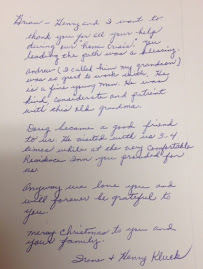 Brian - Henry and I want to
thank you for all your help
during our home crisis. You
leading the path was a blessing.
Andrew (I called him my grandson)
was so great to work with. He
is a fine young man. He was
kind, considerate and patient
with this old grandma.
Doug became a good friend
to us. He met with us 3-4
times while at the very comfortable
Residence Inn you provided for
us.
Anyway we love you and
will forever be grateful to
you.
Merry Christmas to you and
your family.
Irene & Henry Kluck